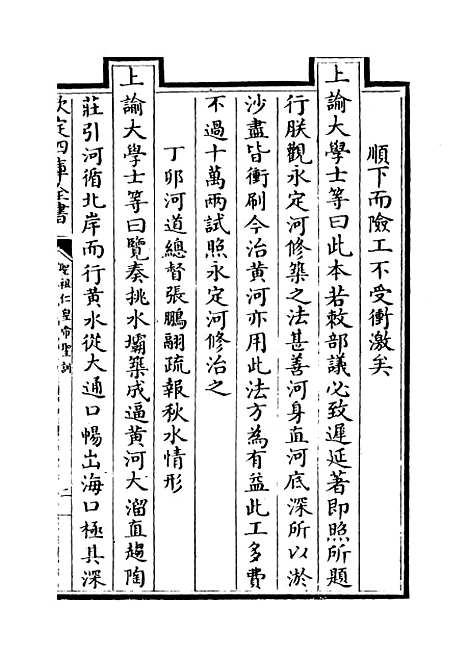 順下而險工不受衝激矣
上諭大學士等曰此本若敕部議必致遲延著即照所題
行朕觀永定河修築之法甚善河身直河底深所以淤
沙盡皆衝刷今治黃河亦用此法方為有益此工多費
不過十萬兩試照永定河修治之
丁卯河道總督張鵬翮疏報秋水情形
上諭大學士等曰覽奏挑水壩築成逼黃河大溜直趨陶
莊引河循北岸而行黃水從大通口暢出海口極其深
欽定四庫全書
聖祖仁皇帝聖訓